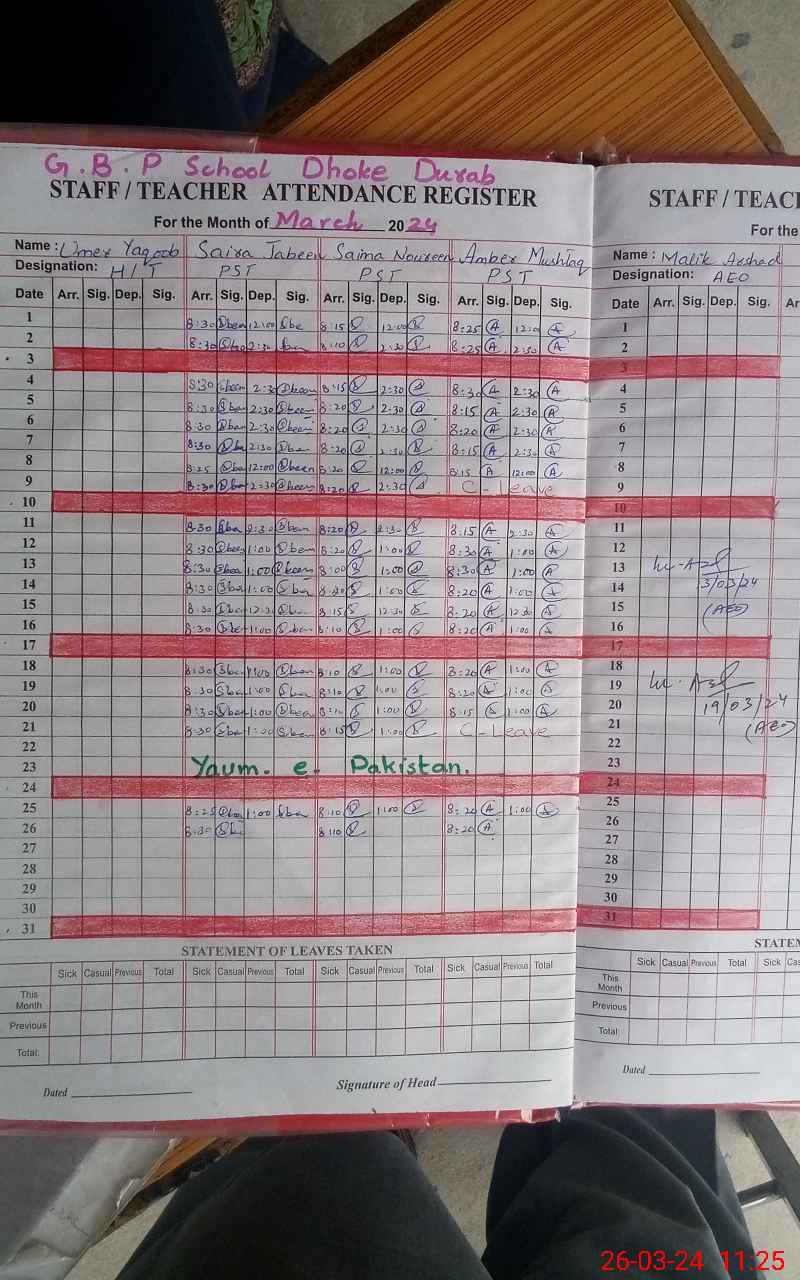 G.B.P School Dhoke Durab
STAFF / TEACHER ATTENDANCE REGISTER
For the Month of March 2024
Name : Umer Yaqoob Saira Jabeen Saima Noureen Amber Mushtaq
Designation: H/T PST PST PST
Date Arr. Sig. Dep. Sig. Arr. Sig. Dep. Sig. Arr. Sig. Dep. Sig. Arr. Sig. Dep. Sig.
1 8:30 12:00 8:15 12:00 8:25 12:0
2 8:30 2:30 8:10 2:30 8:25 2:30
3
4 8:30 2:30 8:15 2:30 8:30 2:30
5 8:30 2:30 8:20 2:30 8:15 2:30
6 8:30 2:30 8:20 2:30 8:20 2:30
7 8:30 2:30 8:20 2:30 8:15 2:30
8 8:25 12:00 8:20 12:00 8:15 12:00
9 8:30 2:30 8:20 2:30 C-Leave
10
11 8:30 2:30 8:20 2:30 8:15 2:30
12 8:30 1:00 8:20 1:00 8:30 1:00
13 8:30 1:00 8:00 1:00 8:30 1:00
14 8:30 1:00 8:20 1:00 8:20 1:00
15 8:30 12:30 8:15 12:30 8:20 12:30
16 8:30 1:00 8:10 1:00 8:20 1:00
17
18 8:30 1:00 8:10 1:00 8:20 1:00
19 8:30 1:00 8:10 1:00 8:20 1:00
20 8:30 1:00 8:10 1:00 8:15 1:00
21 8:30 1:00 8:15 1:00 C-Leave
22
23 Yaum. e. Pakistan.
24
25 8:25 1:00 8:10 1:00 8:20 1:00
26 8:30 8:10 8:20
27
28
29
30
31
STATEMENT OF LEAVES TAKEN
Sick Casual Previous Total Sick Casual Previous Total Sick Casual Previous Total Sick Casual Previous Total
This Month
Previous
Total:
Dated
Signature of Head
STAFF / TEAC
For the
Name : Malik Arshad
Designation: AEO
Date Arr. Sig. Dep. Sig. Ar
1
2
3
4
5
6
7
8
9
10
11
12
13
14 3/03/24
15 (AEO)
16
17
18
19
20 19/03/24
21 (AEO)
22
23
24
25
26
27
28
29
30
31
STATEM
Sick Casual Previous Total Sick Cas
This Month
Previous
Total:
Dated
26-03-24 11:25